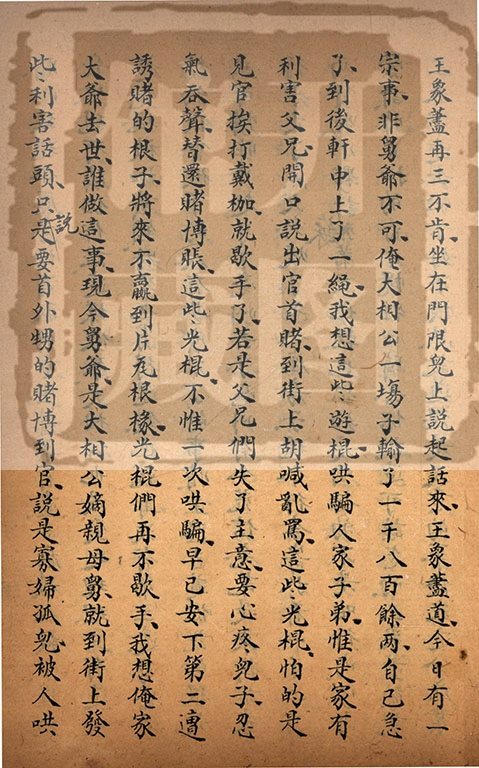 王象藎再三不肯坐在門限兒上說起話來王象藎道今日有一
宗事非舅爺不可俺大相公一塲子輸了一千八百餘兩自己急
了到後軒中上了一繩我想這些遊棍哄騙人家子弟惟是家有
利害父兄開口說出官首賭到街上胡喊亂罵這些光棍怕的是
見官挨打戴枷就歇手了若是父兄們失了主意要心疼兒子忍
氣吞聲替還賭博賬這些光棍不惟一次哄騙早已安下第二遭
誘賭的根子將來不贏到片瓦根椽光棍們再不歇手我想俺家
大爺去世誰做這事現今舅爺是大相公嫡親母舅就到街上發
此利害話頭只是說要首外甥的賭博到官說是寡婦孤兒被人哄